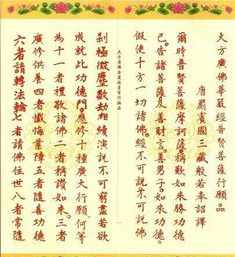 大方廣佛華嚴經普賢菩薩行願
唐罽賓國三藏般若奉詔譯
爾時普賢菩薩摩訶薩稱歎如來勝功德
已告諸菩薩及善財言善男子如來功德
假使十方一切諸佛經不可說不可說佛
剎極微塵數劫相續演說不可窮盡若欲
成就此功德門應修十種廣大行願何等
為十一者禮敬諸佛二者稱讚如來三者
廣修供養四者懺悔業障五者隨喜功德
六者請轉法輪七者請佛住世八者常隨